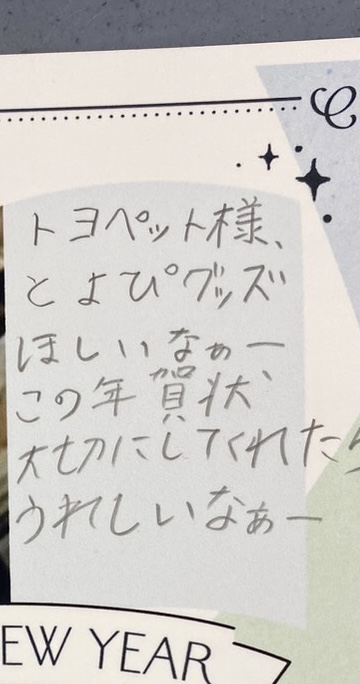 トヨペット様、
とよぴグッズ
ほしいなぁー、
この年賀状、
大切にしてくれたら
うれしいなぁー
EW YEAR